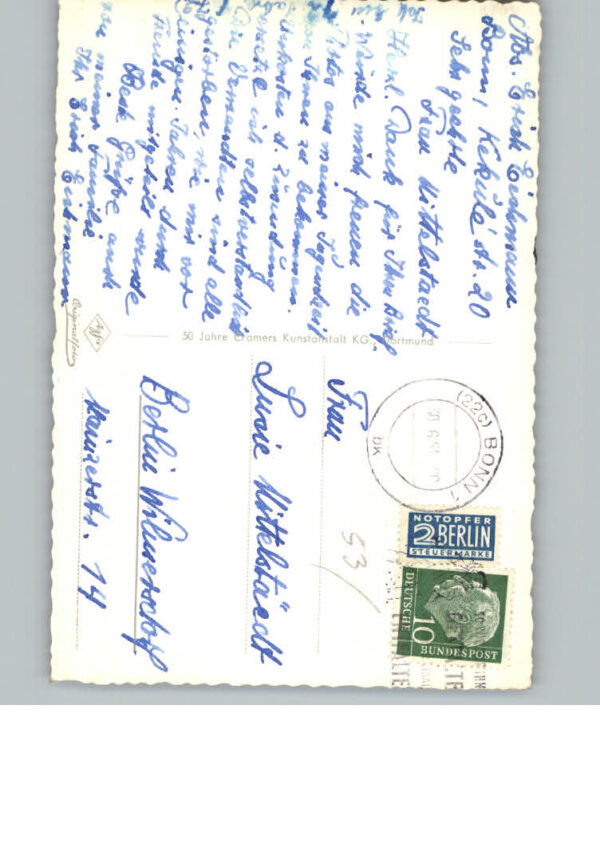 Abs. Erich Eichmann
Bonn, Kekuléstr. 20
Sehr geehrte
Frau Mittelstaedt
Herzl. Dank für Ihren Brief.
Würde mich freuen die
Fotos aus meiner Jugendzeit
von Ihnen zu bekommen.
Unkosten d. Zusendung
ich selbstverständlich
Die Verwandten sind alle
gestorben, wie mir vor
einigen Jahren durch
Freunde mitgeteilt wurde
Beste Grüße auch
von meiner Familie
Ihr Erich Eichmann
Agfa
Originalfoto
50 Jahre Cramers Kunstanstalt KG., Dortmund
Frau
Lucie Mittelstaedt
Berlin Wilmersdorf
Mainzerstr. 14
53
(22c) BONN 1
bk
NOTOPFER
2 BERLIN
STEUERMARKE
DEUTSCHE
10
BUNDESPOST